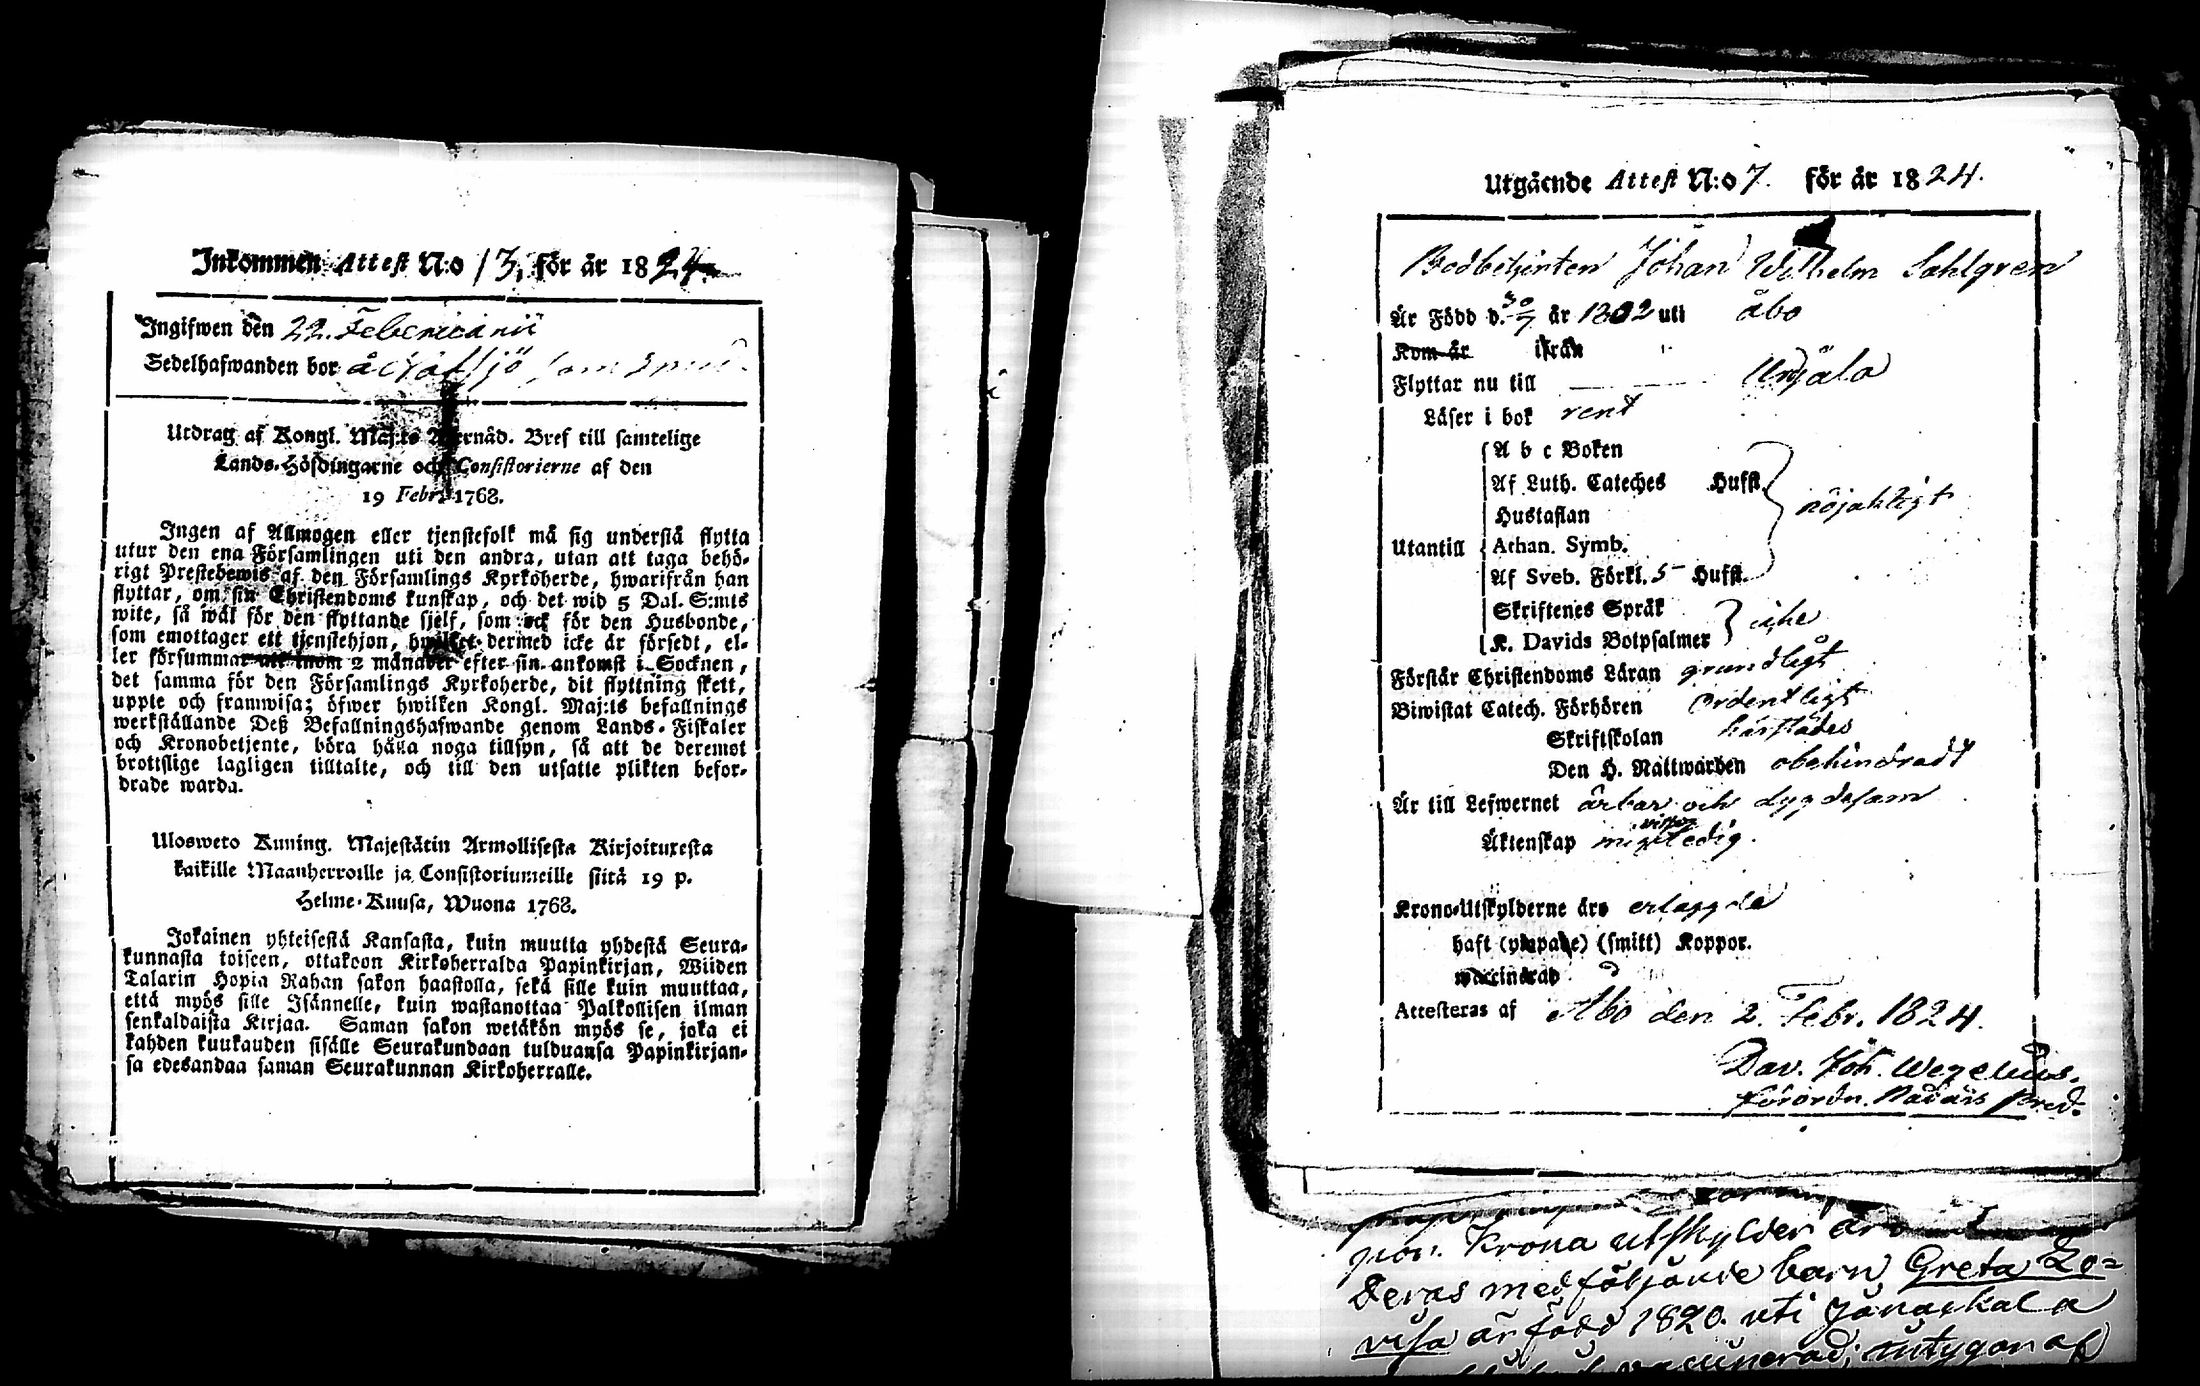 Inkommen Attest N:o 13. för år 1824.
Ingifwen den 22. Februarii
Sedelhafwanden bor å
Utdrag af Kongl. Maj:ts Nåd. Bref till samtelige
Lands-Höfdingarne och Consistorierne af den
19 Febr. 1768.
Ingen af Allmogen eller tjenstefolk må sig understå flytta
utur den ena Församlingen uti den andra, utan att taga behö-
rigt Prestebewis af den Församlings Kyrkoherde, hwarifrån han
flyttar, om sin Christendoms kunskap, och det wid 5 Dal. S:mts
wite, så wäl för den flyttande sjelf, som ock för den Husbonde,
som emottager ett tjenstehjon, hwilket dermed icke är försedt, el-
ler försummar att inom 2 månader efter sin ankomst i Socknen,
det samma för den Församlings Kyrkoherde, dit flyttning skett,
uppte och framwisa; öfwer hwilken Kongl. Maj:ts befallnings
werkställande Deß Befallningshafwande genom Lands-Fiskaler
och Kronobetjente, böra hålla noga tillsyn, så att de deremot
brottslige lagligen tilltalte, och till den utsatte plikten befor-
drade warda.
Ulosweto Kuning. Majestätin Armollisesta Kirjoituxesta
kaikille Maanherroille ja Consistoriumeille siitä 19 p.
Helme-Kuusa, Wuona 1768.
Jokainen yhteisestä Kansasta, kuin muutta yhdestä Seura-
kunnasta toiseen, ottakoon Kirkoherralda Papinkirjan, Wiiden
Talarin Hopia Rahan sakon haastolla, sekä sille kuin muuttaa,
että myös sille Isännelle, kuin wastanottaa Palkollisen ilman
senkaldaista Kirjaa. Saman sakon wetäkön myös se, joka ei
kahden kuukauden sisälle Seurakundaan tulduansa Papinkirjan-
sa edesandaa saman Seurakunnan Kirkoherralle.
Utgående Attest N:o 7. för år 1824.
Bodbetjenten Johan Wilhelm Sahlgren
Är Född d. 30/7 år 1802 uti Åbo
Kom år ifrån
Flyttar nu till Urjala
Läser i bok rent
A b c Boken
Af Luth. Cateches Hufst.
Hustaflan
nöjaktigt
Utantill Athan. Symb.
Af Sveb. Förkl. 5 Hufst.
Skriftenes Språk
K. Davids Botpsalmer
icke
Förstår Christendoms Läran grundligt
Biwistat Catech. Förhören ordentligt
Skriftskolan härstädes
Den H. Nattwarden obehindradt
Är till Lefwernet ärbar och dygdesam
Äktenskap ledig.
Krono-Utskylderne äro erlagde
haft (ympade) (smitt) Koppor.
waccinerad
Attesteras af Åbo den 2. Febr. 1824.
Dav. Joh. Wegelius.
förordn. Pred.
por. Krona utskylder äro
Deras medföljande barn Greta Lo=
visa är född 1820. uti Janackala
vaccinerad; intygar af